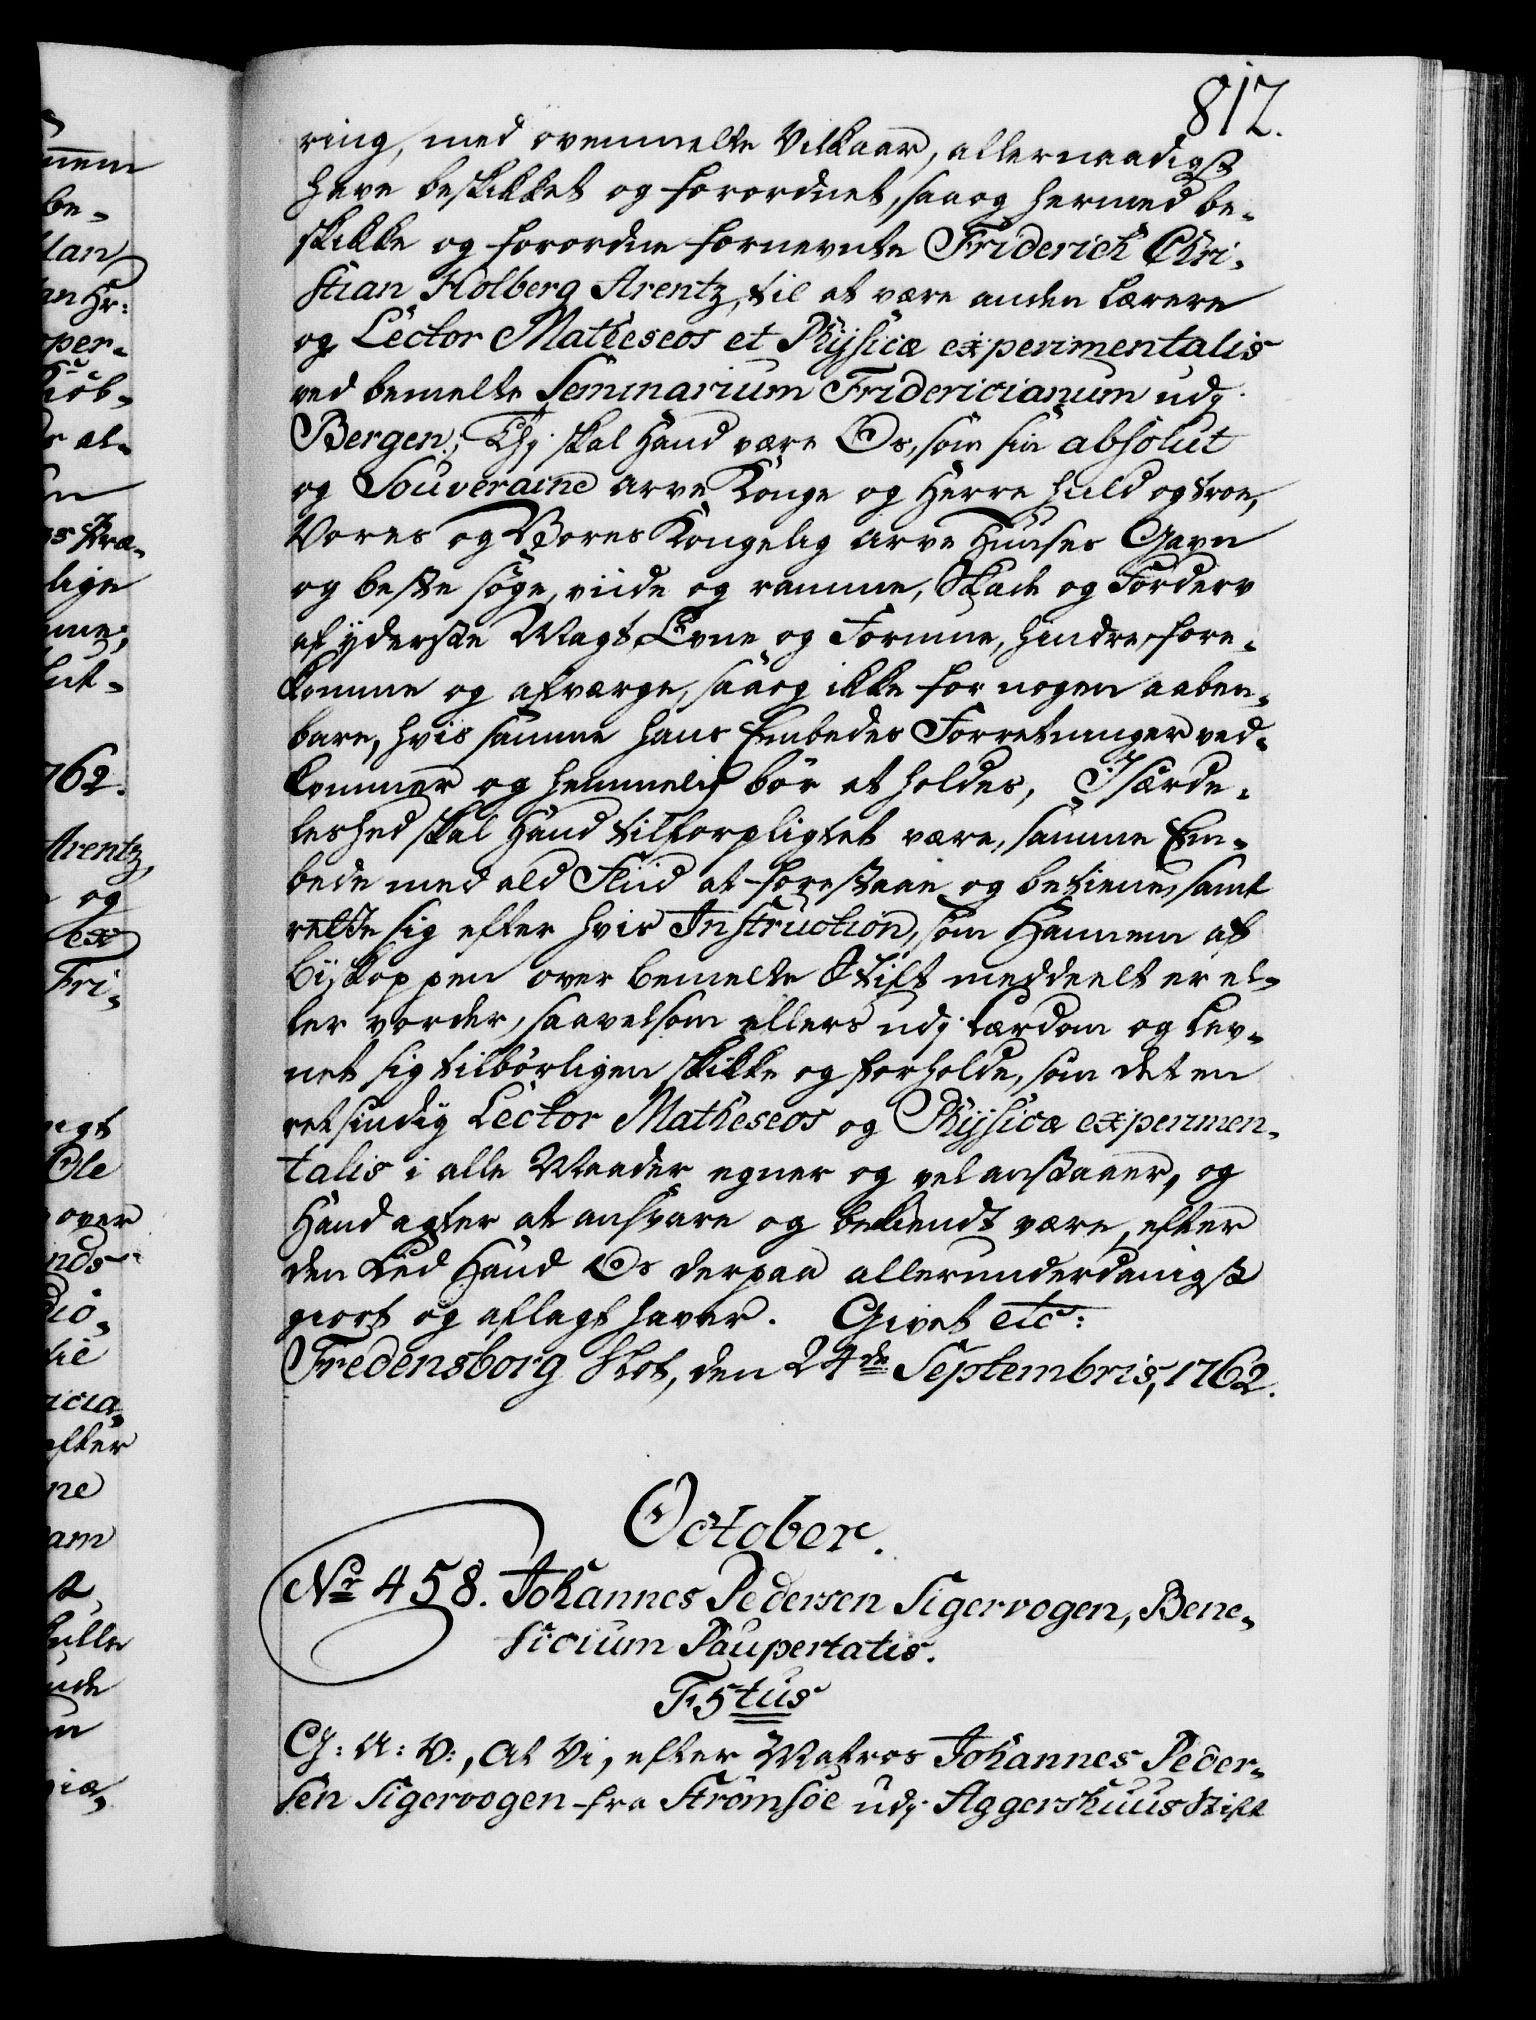 812.
ring, med ovenmelte Vilkaar, allernaadigst
have beskikket og forordnet, saa og hermed be-
skikke og forordne fornevnte Friderich Chri-
stian Holberg Arentz, til at være anden Lærere
og Lector Matheseos et Physicæ experimentalis
ved bemelte Seminarium Fridericianum udj
Bergen; Thj skal Hand være Os, som sin absolut
og Souveraine Arve Konge og Herre huld og troe,
Vores og Vores Kongelig Arve Huuses Gavn
og beste søge, viide og ramme, Skade og Forderv
af yderste Magt, Evne og Formue, hindre, fore-
komme og afværge, saa og ikke for nogen aaben-
bare, hvis samme hans Embedes Forretninger ved-
kommer og hemmelig bør at holdes, Isærde-
leshed skal Hand tilforpligtet være, samme Em-
bede med ald Fliid at forestaae og betiene, samt
rette sig efter hvis Instruction, som Hannem af
Biskoppen over bemelte Stift meddeelt er el-
ler vorder, saavelsom ellers udj Lærdom og Lev-
net sig tilbørligen skikke og forholde, som det en
retsindig Lector Matheseos og Physicæ experimen-
talis i alle Maader egner og vel anstaaer, og
Hand agter at ansvare og bekiendt være, efter
den Eed Hand Os derpaa allerunderdanigst
giort og aflagt haver. Givet etc:
Fredensborg Slot, den 24de Septembris, 1762.
October.
Nr 458. Johannes Pedersen Sigervogen, Bene-
ficium Paupertatis.
F5tus
G: A: V:, At Vi, efter Matros Johannes Peder-
sen Sigervogen fra Strömsöe udj Aggershuus Stift